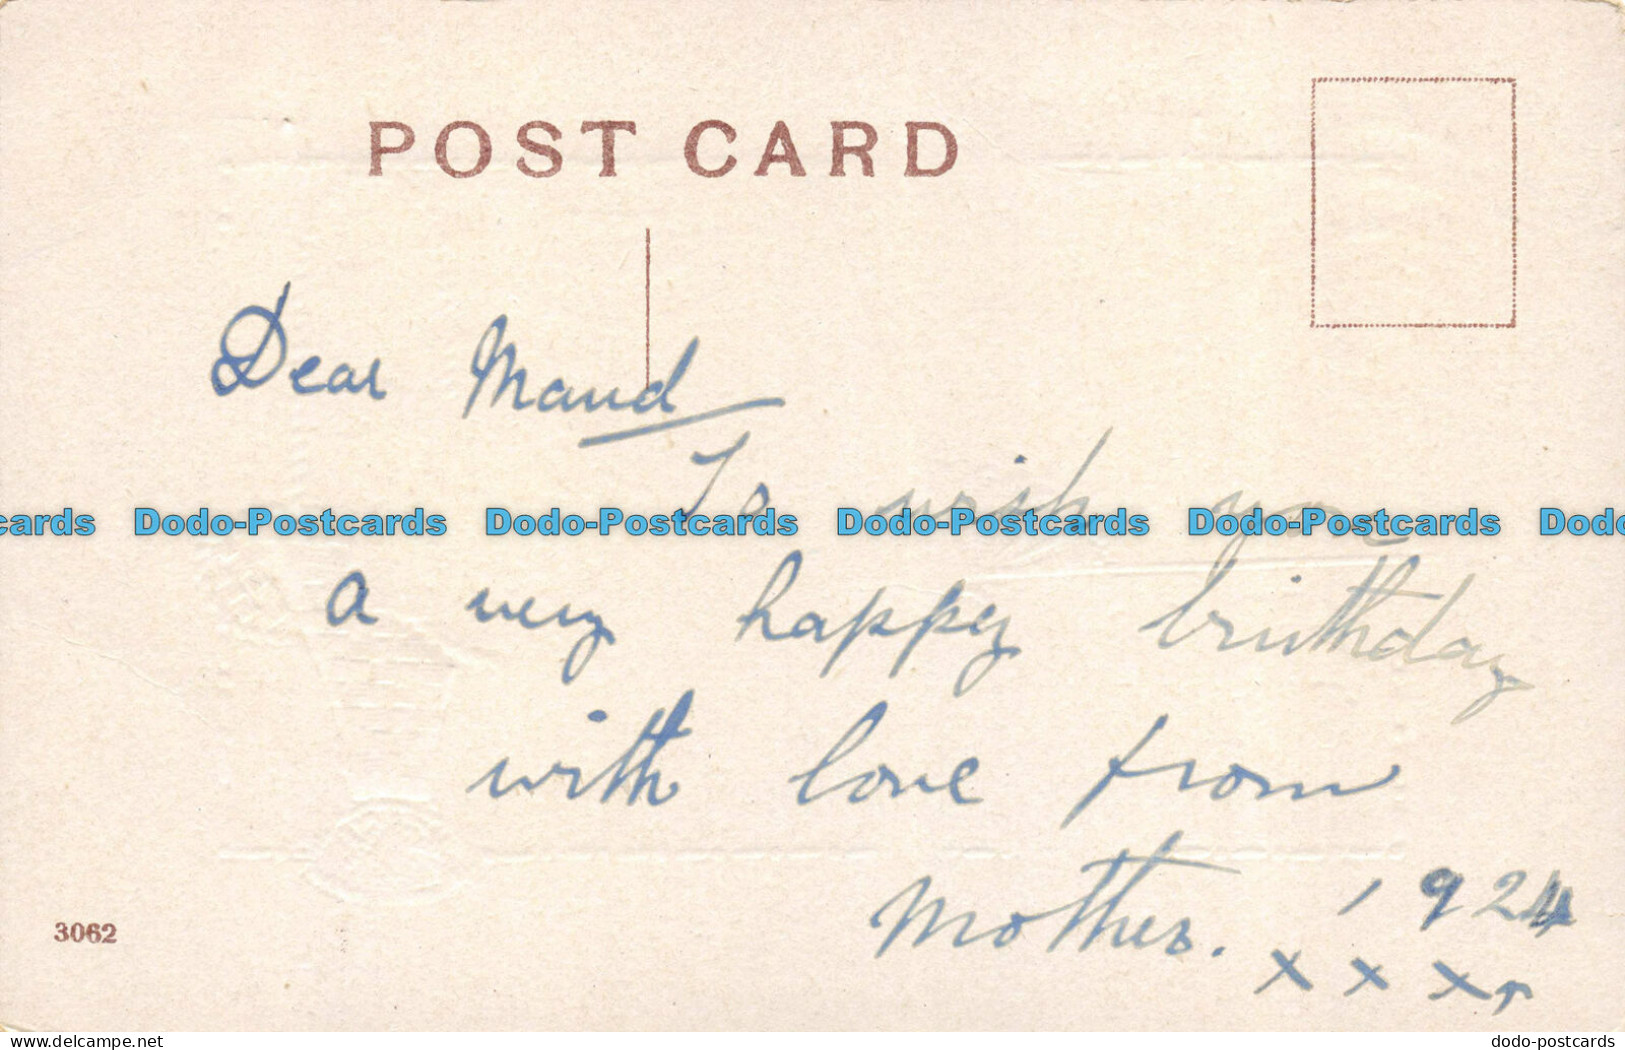 POST CARD
Dear Maud
To wish you
cards Dodo-Postcards Dodo-Postcards Dodo-Postcards Dodo-Postcards Dodo
a very happy birthday
with love from
Mother. 1924
x x x x
3062
delcampe.net dodo-postcards